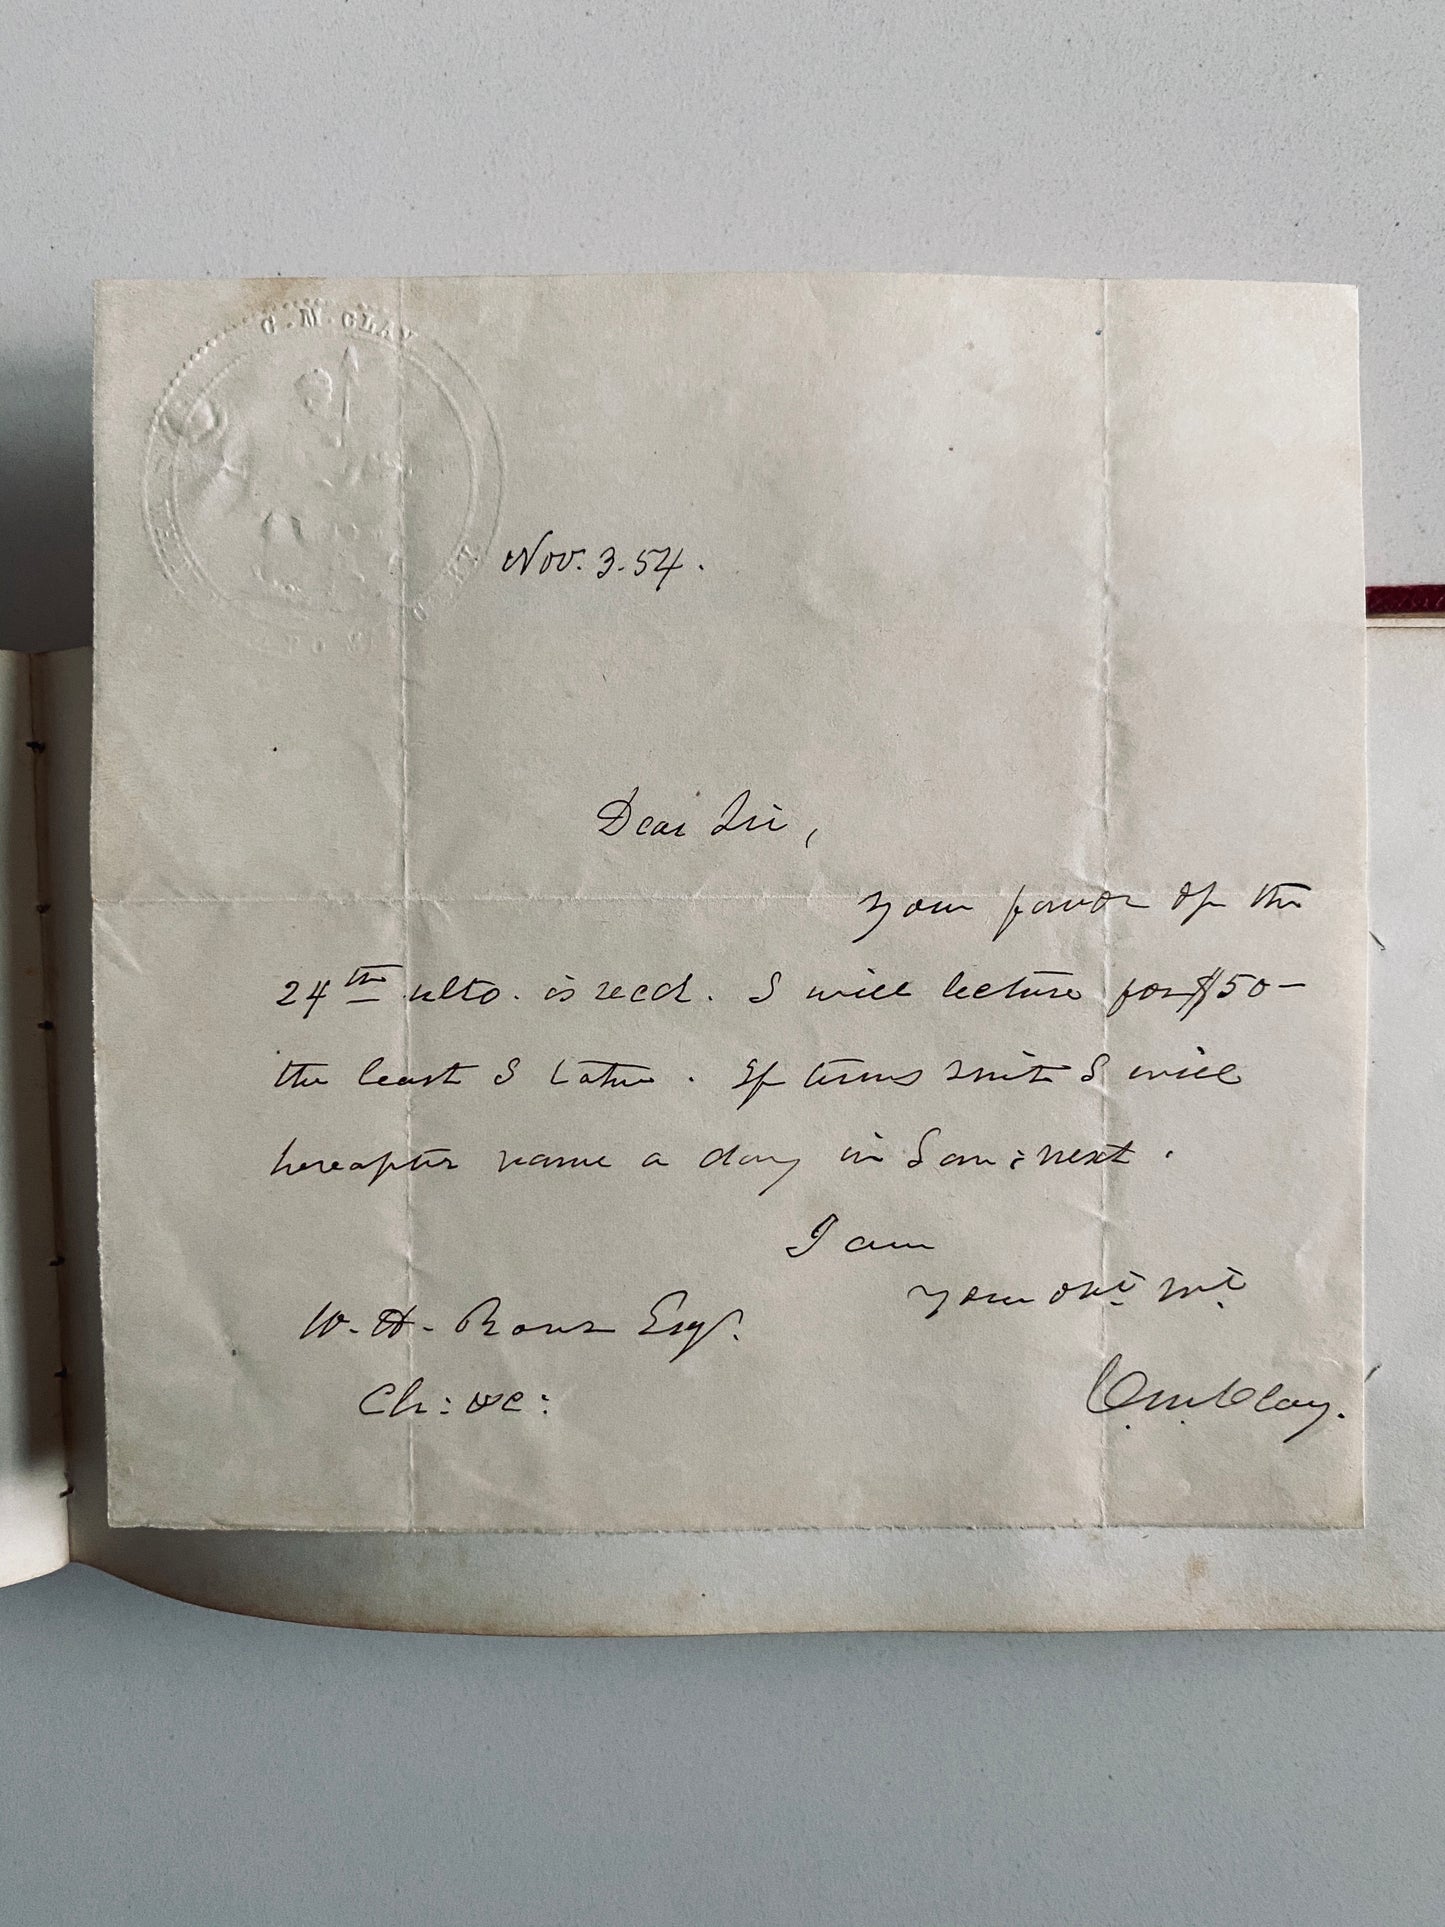 C. M. CLAY
Nov. 3. 54.
Dear Sir,
Your favor of the
24th ulto. is recd. I will lecture for $50–
the least I take. If terms suit I will
hereafter name a day in Jan: next.
I am
your obt. svt.
W. H. Esqr.
Ch: &c:
C. M. Clay.